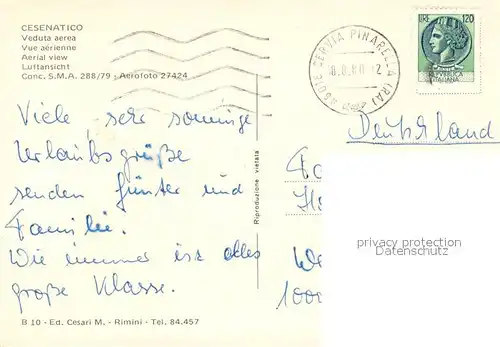 CESENATICO
Veduta aerea
Vue aérienne
Aerial view
Luftansicht
Conc. S.M.A. 288/79 - Aerofoto 27424
LIRE 120
REPVBBLICA
ITALIANA
CERVIA PINARELLA (RA)
Deutschland
Viele sehr sonnige
Urlaubsgrüße
senden Günter und
Familie.
Wie immer ist alles
große Klasse.
Riproduzione vietata
privacy protection
Datenschutz
1000
B 10 - Ed. Cesari M. - Rimini - Tel. 84.457